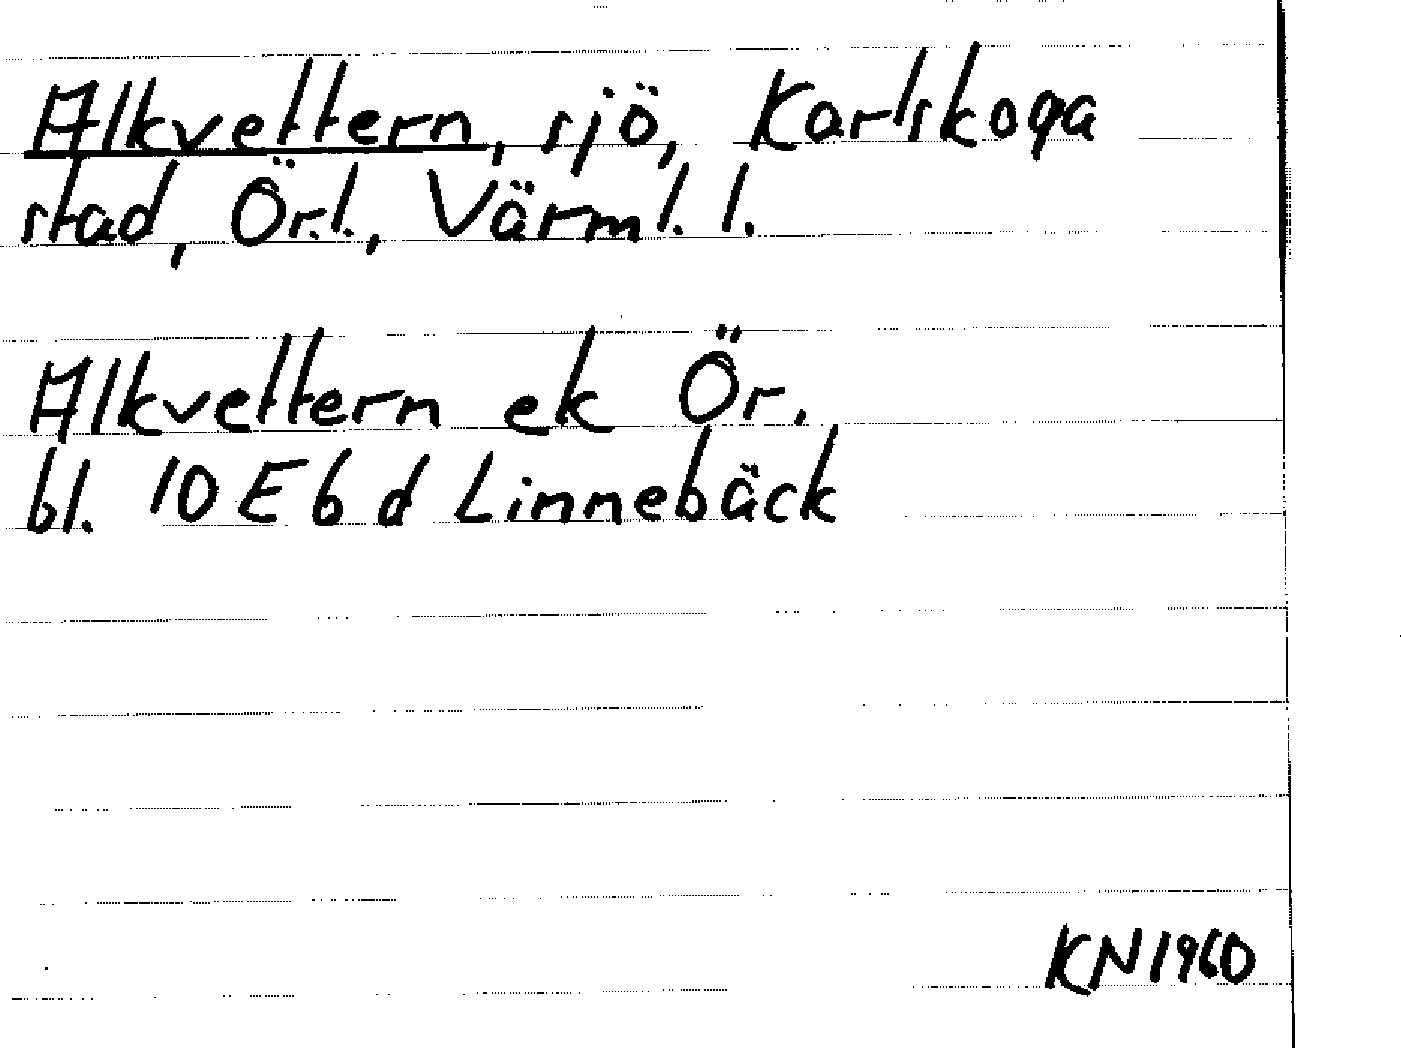 Alkvettern, sjö, Karlskoga
stad, Ör.l., Värml. l.
Alkvettern ek Ör.
bl. 10 E 6 d Linnebäck
KN 1960